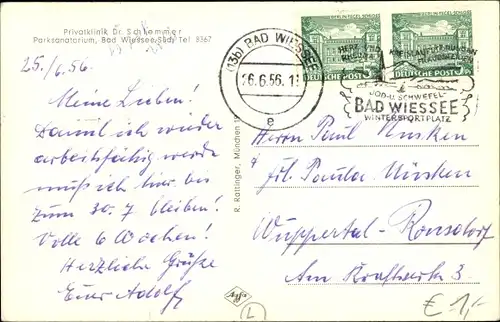 Privatklinik Dr. Schlemmer
Parksanatorium, Bad Wiessee-Süd, Tel 8367
25./6.56.
Meine Lieben!
Damit ich wieder
arbeitsfähig werde
muß ich hier bis
zum 30.7 bleiben!
Volle 6 Wochen!
Herzliche Grüße
Euer Adolf
R. Rattinger, München
Agfa
L
(13b) BAD WIESSEE
26.6.56.
e
DEUTSCHE POST
DEUTSCHE POST
HERZ
JOD-U. SCHWEFEL-
BAD WIESSEE
WINTERSPORTPLATZ
Herrn Paul Nüsken
Frl. Paula Nüsken
Wuppertal-Ronsdorf
Am Kraftwerk 3.
€ 1,-